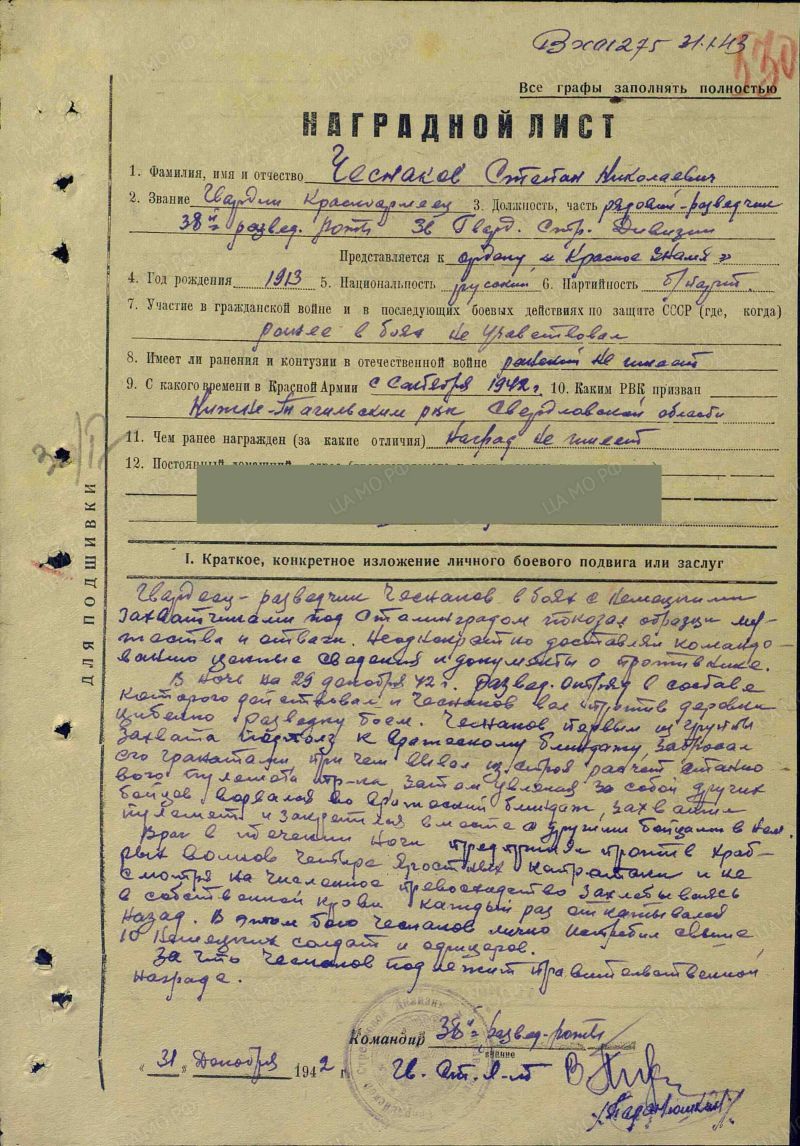 Вх 01275 31.1.43
530
Все графы заполнять полностью
НАГРАДНОЙ ЛИСТ
1. Фамилия, имя и отчество Чеснаков Степан Николаевич
2. Звание Гвардии Красноармеец 3. Должность, часть рядовой-разведчик
38й развед. роты 36 Гвард. Стр. Дивизии
Представляется к ордену "Красное Знамя"
4. Год рождения 1913 5. Национальность русский 6. Партийность б/парт.
7. Участие в гражданской войне и в последующих боевых действиях по защите СССР (где, когда)
ранее в боях не участвовал
8. Имеет ли ранения и контузии в отечественной войне ранений не имеет
9. С какого времени в Красной Армии с сентября 1942 г. 10. Каким РВК призван
Нижне-Тагильским рвк Свердловской области
11. Чем ранее награжден (за какие отличия) Наград не имеет
12. Постоянный домашний
ДЛЯ ПОДШИВКИ
I. Краткое, конкретное изложение личного боевого подвига или заслуг
Гвардеец-разведчик Чеснаков в боях с немецкими
захватчиками под Сталинградом показал образцы му-
жества и отваги. Неоднократно доставлял командо-
ванию ценные сведения и документы о противнике.
В ночь на 29 декабря 42 г. развед. отряд в составе
которого действовал и Чеснаков вел против деревни
Цибенко разведку боем. Чеснаков первым из группы
захвата подполз к вражескому блиндажу, забросал
его гранатами, при чем вывел из строя расчет станко-
вого пулемета пр-ка затем увлекая за собой других
бойцов ворвался во вражеский блиндаж, захватил
пулемет и закрепился вместе с другими бойцами в нем.
Враг в течении ночи предпринял против храб-
рых воинов четыре яростных контратаки и не
смотря на численное превосходство захлебываясь
в собственной крови каждый раз откатывался
назад. В этом бою Чеснаков лично истребил свыше
10 немецких солдат и офицеров.
За что Чеснаков подлежит правительственной
награде.
Командир 38й развед-роты
звание
"31" Декабря 1942 г. Гв. Ст. Л-т